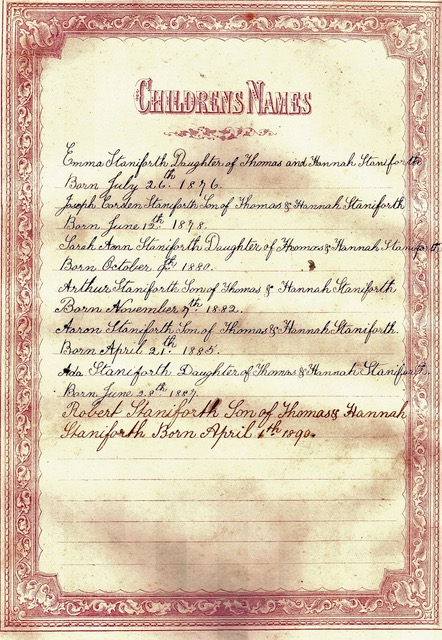 CHILDRENS NAMES
Emma Staniforth Daughter of Thomas and Hannah Staniforth
Born July 26th 1876.
Joseph Staniforth Son of Thomas & Hannah Staniforth
Born June 1878.
Sarah Ann Staniforth Daughter of Thomas & Hannah Staniforth
Born October 1880.
Arthur Staniforth Son of Thomas & Hannah Staniforth
Born November 7th 1882.
Aaron Staniforth Son of Thomas & Hannah Staniforth.
Born April 21st 1885.
Ada Staniforth Daughter of Thomas & Hannah Staniforth.
Born June 28th 1887.
Robert Staniforth Son of Thomas & Hannah
Staniforth Born April 1890.